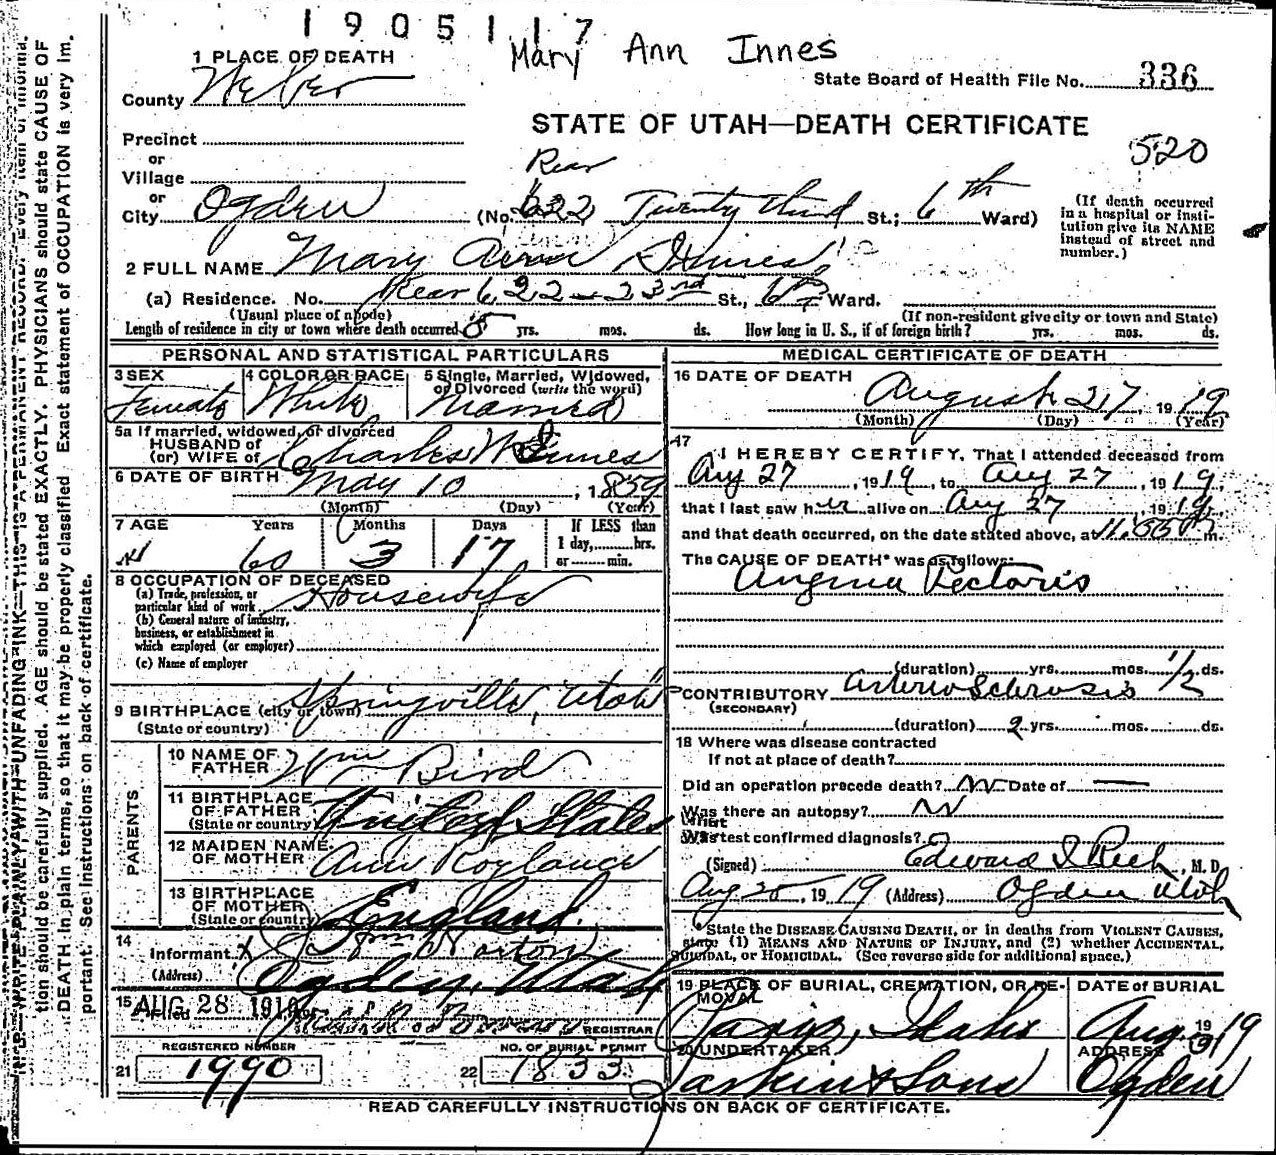 1905117
Mary Ann Innes
1 PLACE OF DEATH
State Board of Health File No. 336
County Weber
STATE OF UTAH—DEATH CERTIFICATE
520
Precinct
or
Village
Rear
or
City Ogden (No. 622 Twenty third St.; 6th Ward)
(If death occurred in a hospital or institution give its NAME instead of street and number.)
2 FULL NAME Mary Ann Innes
(a) Residence. No. Rear 622 - 23rd St., 6 Ward.
(Usual place of abode) (If non-resident give city or town and State)
Length of residence in city or town where death occurred 5 yrs. mos. ds. How long in U. S., if of foreign birth? yrs. mos. ds.
PERSONAL AND STATISTICAL PARTICULARS
3 SEX Female
4 COLOR OR RACE White
5 Single, Married, Widowed, or Divorced (write the word) Married
5a If married, widowed, or divorced
HUSBAND of
(or) WIFE of Charles W Innes
6 DATE OF BIRTH May 10, 1859
(Month) (Day) (Year)
7 AGE Years Months Days If LESS than
60 3 17 1 day, hrs.
or min.
8 OCCUPATION OF DECEASED
(a) Trade, profession, or particular kind of work Housewife
(b) General nature of industry, business, or establishment in which employed (or employer)
(c) Name of employer
9 BIRTHPLACE (city or town) Springville, Utah
(State or country)
PARENTS
10 NAME OF FATHER Wm Bird
11 BIRTHPLACE OF FATHER (State or country) United States
12 MAIDEN NAME OF MOTHER Ann Roylance
13 BIRTHPLACE OF MOTHER (State or country) England.
14 Informant X Norton
(Address) Ogden, Utah
15 Filed AUG 28 1919
REGISTRAR
REGISTERED NUMBER
21 1990
NO. OF BURIAL PERMIT
22 1833
MEDICAL CERTIFICATE OF DEATH
16 DATE OF DEATH
August 27, 1919
(Month) (Day) (Year)
17 I HEREBY CERTIFY, That I attended deceased from
Aug 27, 1919, to Aug 27, 1919,
that I last saw her alive on Aug 27, 1919,
and that death occurred, on the date stated above, at 11.55 m.
The CAUSE OF DEATH* was as follows:
Angina Pectoris
(duration) yrs. mos. 1/2 ds.
CONTRIBUTORY Arterio Sclerosis
(SECONDARY)
(duration) 2 yrs. mos. ds.
18 Where was disease contracted
If not at place of death?
Did an operation precede death? No Date of —
Was there an autopsy? No
What test confirmed diagnosis?
(Signed) Edward I Rich, M. D.
Aug 28, 1919 (Address) Ogden Utah
*State the DISEASE CAUSING DEATH, or in deaths from VIOLENT CAUSES, state (1) MEANS AND NATURE OF INJURY, and (2) whether ACCIDENTAL, SUICIDAL, or HOMICIDAL. (See reverse side for additional space.)
19 PLACE OF BURIAL, CREMATION, OR REMOVAL
Paris, Idaho
DATE of BURIAL
Aug. 1919
20 UNDERTAKER
Larkin & Sons
ADDRESS
Ogden
READ CAREFULLY INSTRUCTIONS ON BACK OF CERTIFICATE.
N.B.—WRITE PLAINLY WITH UNFADING INK—THIS IS A PERMANENT RECORD. Every item of informa-
tion should be carefully supplied. AGE should be stated EXACTLY. PHYSICIANS should state CAUSE OF
DEATH in plain terms, so that it may be properly classified. Exact statement of OCCUPATION is very im-
portant. See instructions on back of certificate.